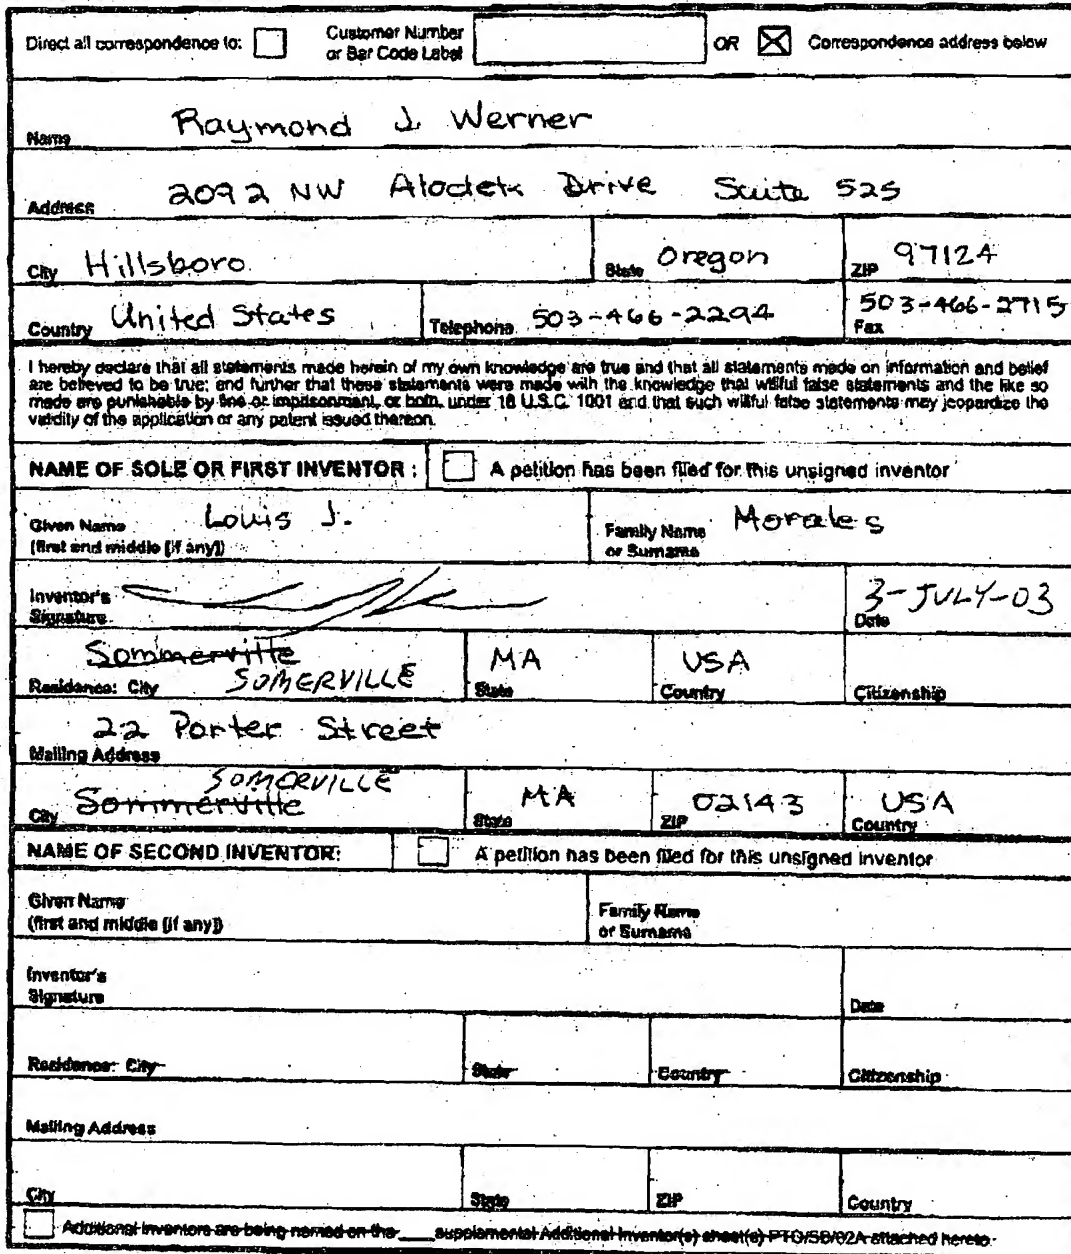 Direct all correspondence to: Customer Number or Bar Code Label OR Correspondence address below
Name Raymond J. Werner
Address 2092 NW Aloclek Drive Suite 525
City Hillsboro State Oregon ZIP 97124
Country United States Telephone 503-466-2294 503-466-2715 Fax
I hereby declare that all statements made herein of my own knowledge are true and that all statements made on information and belief
are believed to be true; and further that these statements were made with the knowledge that willful false statements and the like so
made are punishable by fine or imprisonment, or both, under 18 U.S.C. 1001 and that such willful false statements may jeopardize the
validity of the application or any patent issued thereon.
NAME OF SOLE OR FIRST INVENTOR : A petition has been filed for this unsigned inventor
Given Name Louis J. Family Name Morales
(first and middle [if any]) or Surname
Inventor's Signature 3-JULY-03 Date
Sommerville MA USA
Residence: City SOMERVILLE State Country Citizenship
22 Porter Street
Mailing Address
SOMERVILLE
City Sommerville MA State 02143 ZIP USA Country
NAME OF SECOND INVENTOR: A petition has been filed for this unsigned inventor
Given Name Family Name
(first and middle [if any]) or Surname
Inventor's
Signature Date
Residence: City State Country Citizenship
Mailing Address
City State ZIP Country
Additional inventors are being named on the ___ supplemental Additional Inventor(s) sheet(s) PTO/SB/02A attached hereto.